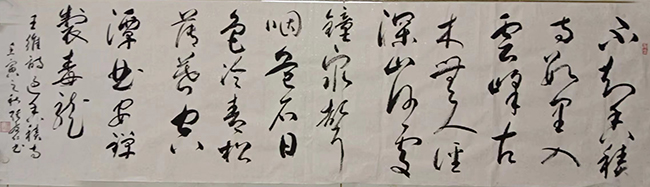 不知香積
寺數里入
雲峰古
木無人徑
深山何處
鐘泉聲
咽危石日
色冷青松
薄暮空
潭曲安禪
製毒龍
王維詩過香積寺
壬寅之秋